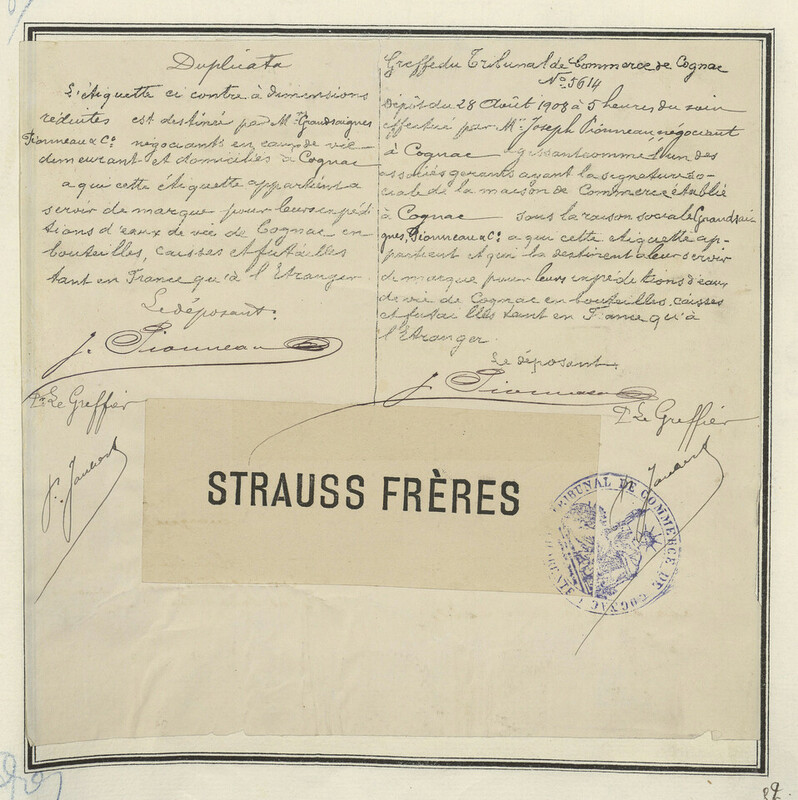 Duplicata
L'étiquette ci contre à dimensions
réduites est destinée par Mrs Grandsaignes
Pionneau & Cie négociants en eaux de vie
demeurant et domiciliés à Cognac
a qui cette étiquette appartient a
servir de marque pour leurs expédi
tions d'eaux de vie de Cognac en
bouteilles, caisses et futailles
tant en France qu'à l'Etranger.
Le déposant.
J. Pionneau
Pr Le Greffier
P. Jaubert
Greffe du Tribunal de Commerce de Cognac
No 5614
Dépôt du 28 Août 1908 à 5 heures du soir
effectué par Mr Joseph Pionneau, négociant
à Cognac agissant comme l'un des
associés gerants ayant la signature so-
ciale de la maison de Commerce établie
à Cognac sous la raison sociale Grandsai
gnes, Pionneau & Cie a qui cette étiquette ap-
partient et qui la destinent a leur servir
de marque pour leurs expéditions d'eaux
de vie de Cognac en bouteilles, caisses
et futailles tant en France qu'à
l'Etranger.
Le déposant
J. Pionneau
Pr Le Greffier
Jaubert
STRAUSS FRÈRES
TRIBUNAL DE COMMERCE DE COGNAC